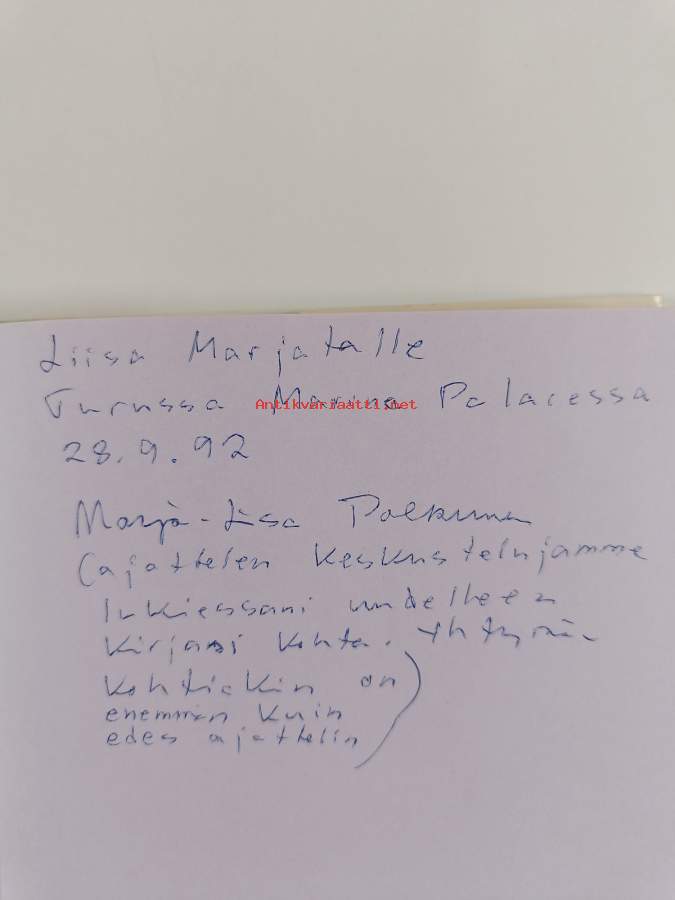 Liisa Marjatalle
Turussa Marina Palacessa
Antikvariaatti.net
28.9.92
Marja-Liisa
(ajattelen keskustelujamme
lukiessani uudelleen
kirjani kohta. Yhtymä-
kohtiakin on
enemmän kuin
edes ajattelin)